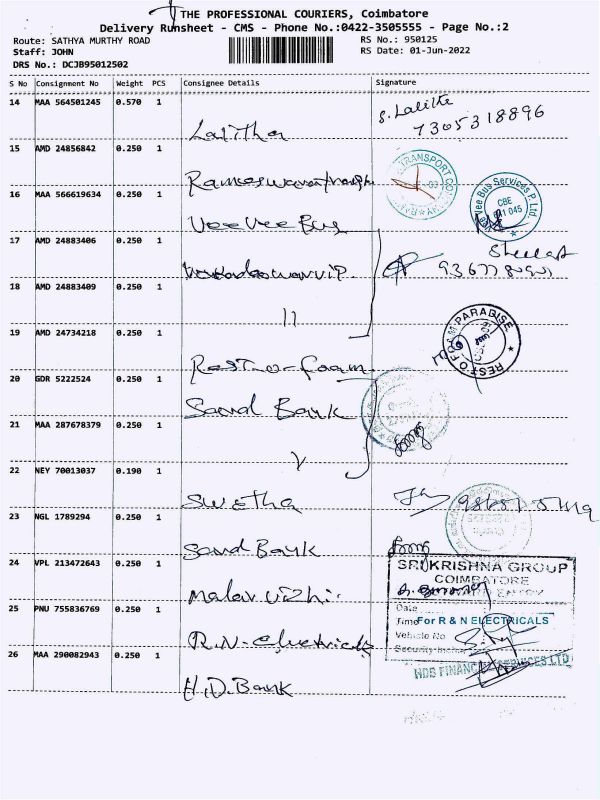 THE PROFESSIONAL COURIERS, Coimbatore
Delivery Runsheet - CMS - Phone No.:0422-3505555 - Page No.:2
Route: SATHYA MURTHY ROAD RS No.: 950125
Staff: JOHN RS Date: 01-Jun-2022
DRS No.: DCJB95012502
S No Consignment No Weight PCS Consignee Details Signature
14 MAA 564501245 0.570 1
Lalitha S. Lalitha 7305318896
15 AMD 24856842 0.250 1
TRANSPORT
16 MAA 566619634 0.250 1
Vee Vee Bus Vee Bus Services P. Ltd. CBE 641 045
17 AMD 24883406 0.250 1
18 AMD 24883409 0.250 1
11
19 AMD 24734218 0.250 1
Rest-o-foam RESTOFOAM PARADISE
20 GDR 5222524 0.250 1
Sound Bank
21 MAA 287678379 0.250 1
22 NEY 70013037 0.190 1
Swetha
23 NGL 1789294 0.250 1
Sound Bank
24 VPL 213472643 0.250 1
Malar vizhi SRI KRISHNA GROUP
COIMBATORE
ENTRY
25 PNU 755836769 0.250 1
Date
R.N. Electricals Time For R & N ELECTRICALS
Vehicle No
Security Incharge
26 MAA 290082943 0.250 1
H.D. Bank HDB FINANCIAL SERVICES LTD